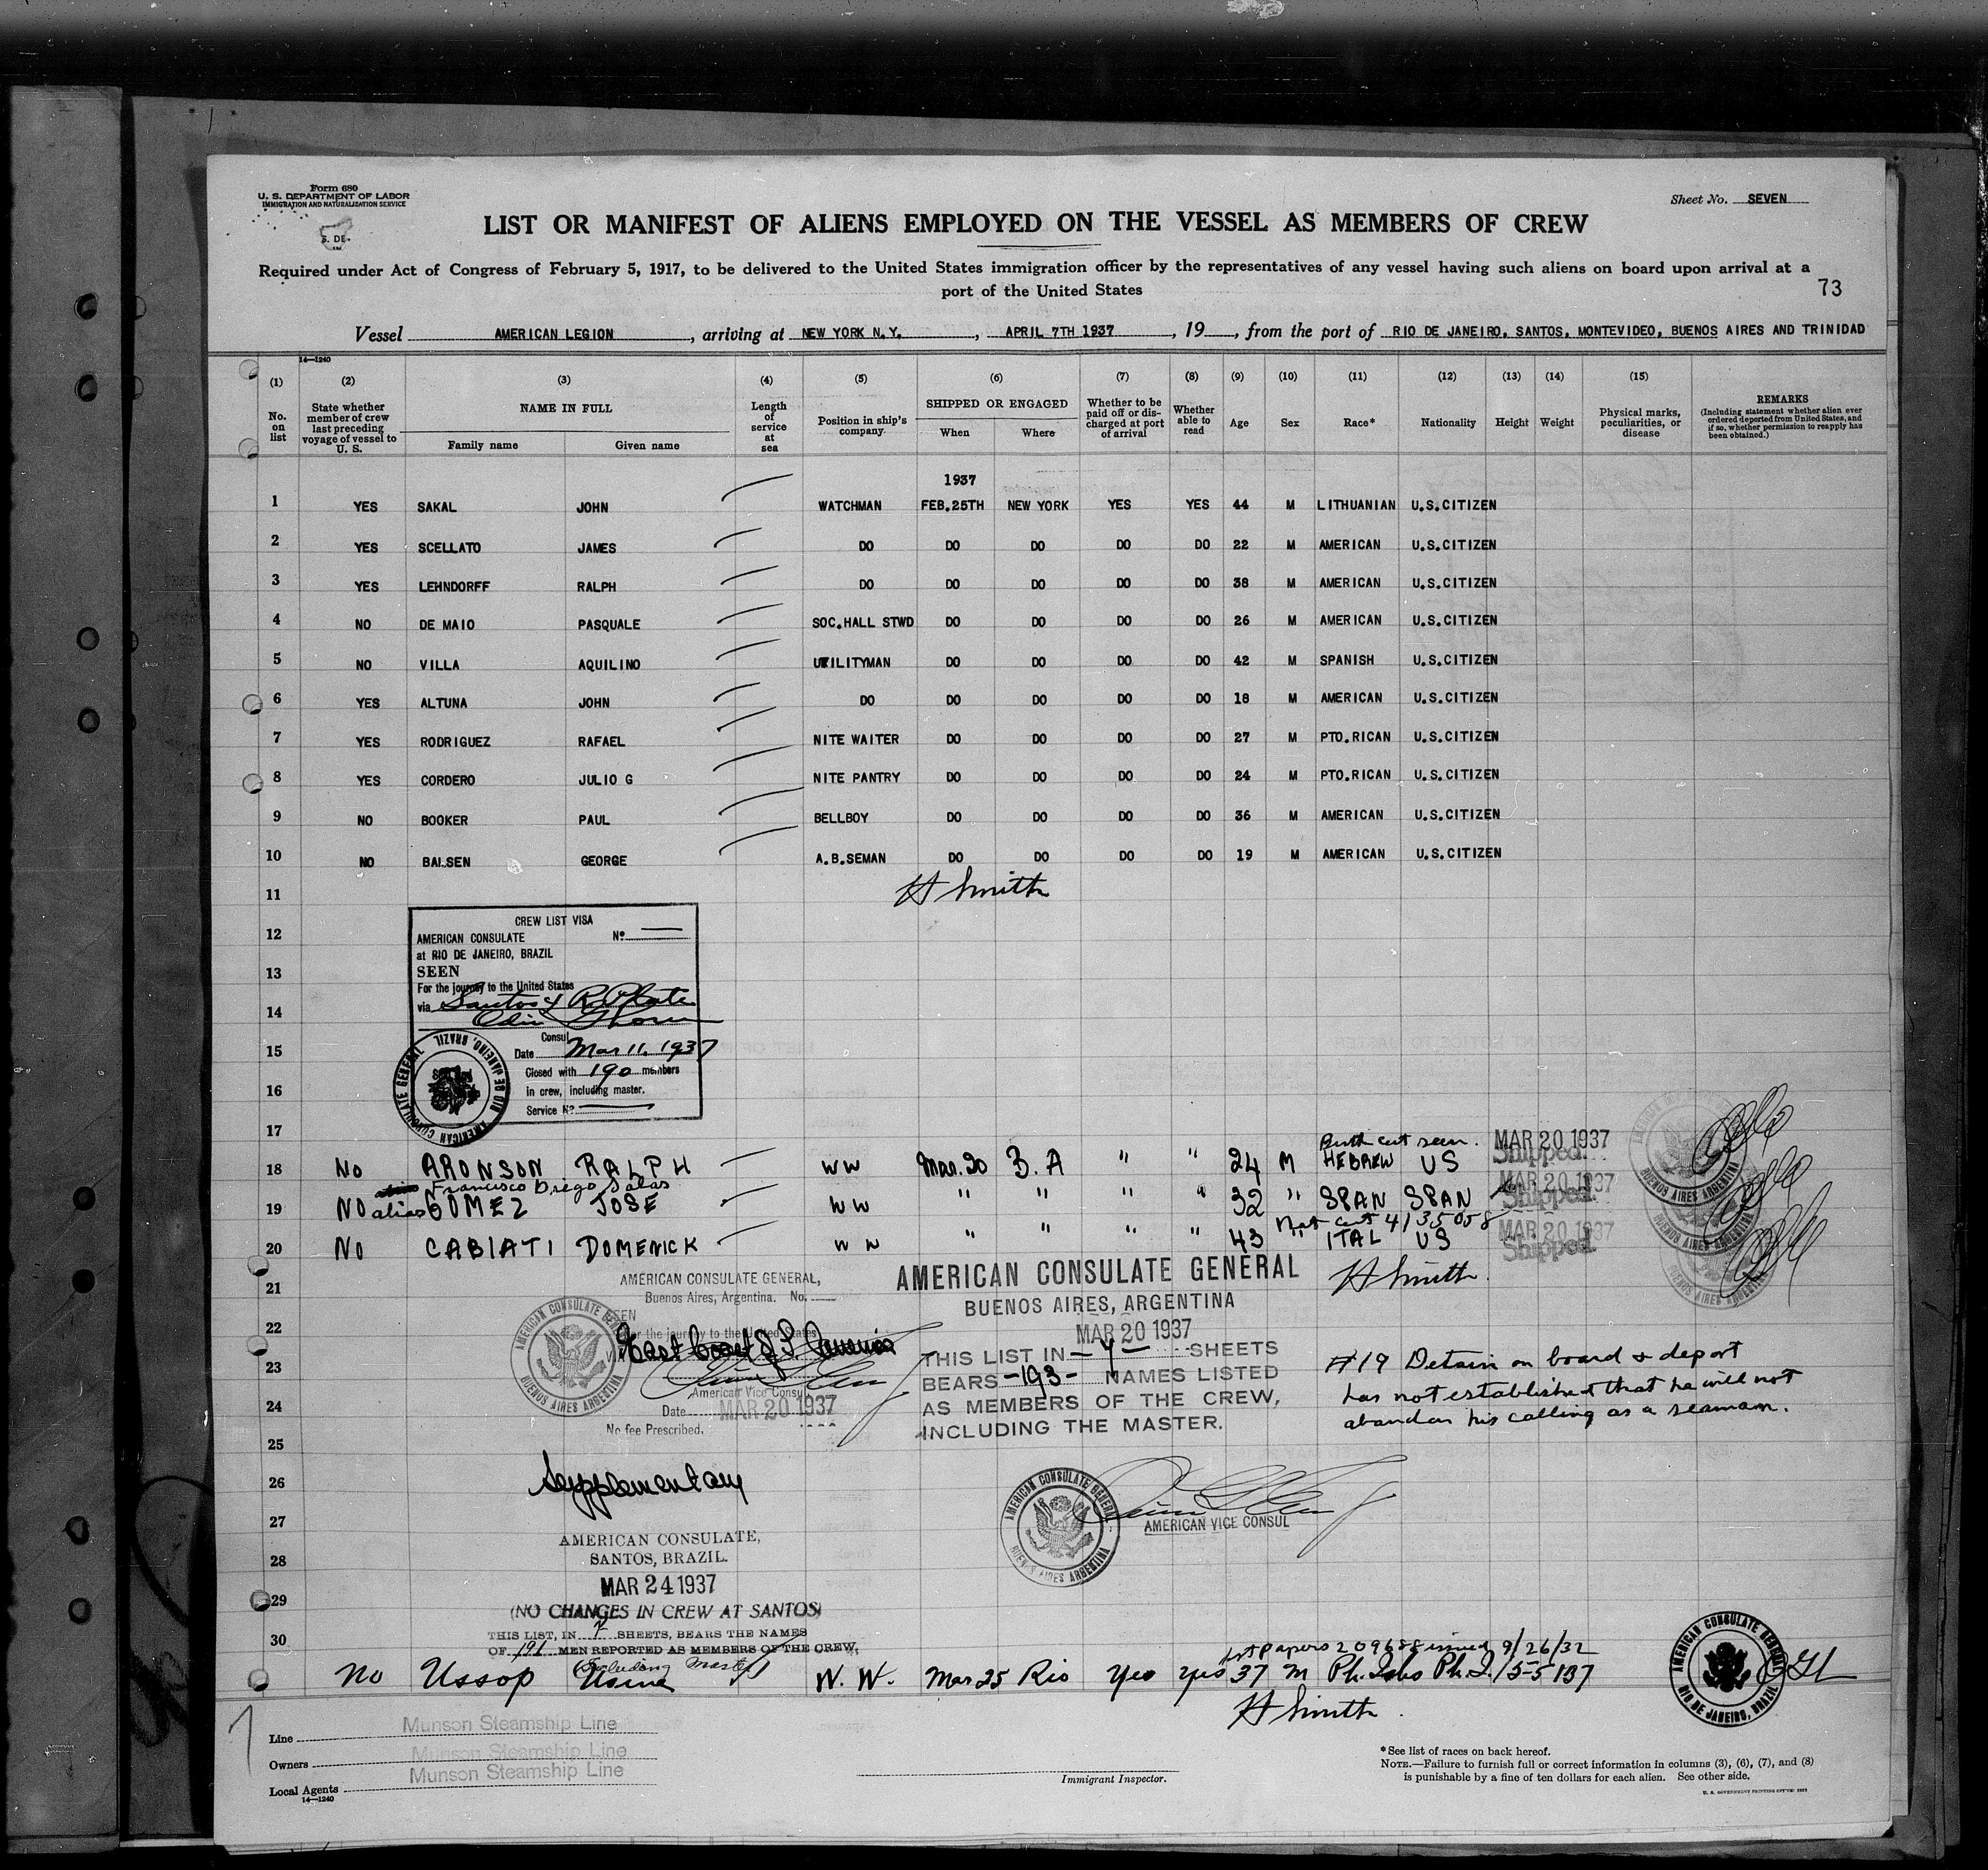 Form 680
U. S. DEPARTMENT OF LABOR
IMMIGRATION AND NATURALIZATION SERVICE
Sheet No. SEVEN
LIST OR MANIFEST OF ALIENS EMPLOYED ON THE VESSEL AS MEMBERS OF CREW
Required under Act of Congress of February 5, 1917, to be delivered to the United States immigration officer by the representatives of any vessel having such aliens on board upon arrival at a
port of the United States
73
Vessel AMERICAN LEGION, arriving at NEW YORK N.Y., APRIL 7TH 1937, 19, from the port of RIO DE JANEIRO, SANTOS, MONTEVIDEO, BUENOS AIRES AND TRINIDAD
14—1240
(1) (2) (3) (4) (5) (6) (7) (8) (9) (10) (11) (12) (13) (14) (15)
No. on list State whether member of crew last preceding voyage of vessel to U. S. NAME IN FULL Family name Given name Length of service at sea Position in ship's company SHIPPED OR ENGAGED When Where Whether to be paid off or discharged at port of arrival Whether able to read Age Sex Race* Nationality Height Weight Physical marks, peculiarities, or disease REMARKS (Including statement whether alien ever ordered deported from United States, and if so, whether permission to reapply has been obtained.)
1937
1 YES SAKAL JOHN WATCHMAN FEB.25TH NEW YORK YES YES 44 M LITHUANIAN U.S.CITIZEN
2 YES SCELLATO JAMES DO DO DO DO DO 22 M AMERICAN U.S.CITIZEN
3 YES LEHNDORFF RALPH DO DO DO DO DO 38 M AMERICAN U.S.CITIZEN
4 NO DE MAIO PASQUALE SOC.HALL STWD DO DO DO DO 26 M AMERICAN U.S.CITIZEN
5 NO VILLA AQUILINO UTILITYMAN DO DO DO DO 42 M SPANISH U.S.CITIZEN
6 YES ALTUNA JOHN DO DO DO DO DO 18 M AMERICAN U.S.CITIZEN
7 YES RODRIGUEZ RAFAEL NITE WAITER DO DO DO DO 27 M PTO.RICAN U.S.CITIZEN
8 YES CORDERO JULIO G NITE PANTRY DO DO DO DO 24 M PTO.RICAN U.S.CITIZEN
9 NO BOOKER PAUL BELLBOY DO DO DO DO 36 M AMERICAN U.S.CITIZEN
10 NO BALSEN GEORGE A.B.SEMAN DO DO DO DO 19 M AMERICAN U.S.CITIZEN
11 H Smith
12
13
14
15
16
17
CREW LIST VISA
AMERICAN CONSULATE No
at RIO DE JANEIRO, BRAZIL
SEEN
For the journey to the United States
via Santos & R. Plate
Consul
Date Mar 11, 1937
Closed with 190 members
in crew, including master.
Service No
AMERICAN CONSULATE GENERAL RIO DE JANEIRO, BRAZIL
Birth cert seen. MAR 20 1937
18 No ARONSON RALPH WW Mar. 20 B. A " " 24 M HEBREW US Shipped.
alias Francisco Diego Salas MAR 20 1937
19 NO alias GOMEZ JOSE WW " " " " 32 " SPAN SPAN Shipped.
Nat cert 4135058 MAR 20 1937
20 No CABIATI DOMENICK WW " " " " 43 " ITAL US Shipped.
BUENOS AIRES ARGENTINA
H Smith
21
22
23
24
25
26
27
28
29
30
AMERICAN CONSULATE GENERAL,
Buenos Aires, Argentina. No.
SEEN
For the journey to the United States
East Coast of S. America
American Vice Consul
Date MAR 20 1937
No fee Prescribed.
AMERICAN CONSULATE GENERAL BUENOS AIRES ARGENTINA
AMERICAN CONSULATE GENERAL
BUENOS AIRES, ARGENTINA
MAR 20 1937
THIS LIST IN SHEETS
BEARS -193- NAMES LISTED
AS MEMBERS OF THE CREW,
INCLUDING THE MASTER.
#19 Detain on board & deport
has not established that he will not
abandon his calling as a seaman.
Supplementary
AMERICAN CONSULATE GENERAL BUENOS AIRES ARGENTINA
AMERICAN VICE CONSUL
AMERICAN CONSULATE,
SANTOS, BRAZIL.
MAR 24 1937
(NO CHANGES IN CREW AT SANTOS)
THIS LIST, IN 7 SHEETS, BEARS THE NAMES
OF 191 MEN REPORTED AS MEMBERS OF THE CREW,
(Including Master)
1st papers 209688 issued 9/26/32
No Ussop Usine W. W. Mar 25 Rio Yes yes 37 M Ph. Isls Ph. I. 5-5 137
AMERICAN CONSULATE GENERAL RIO DE JANEIRO, BRAZIL
H Smith
Line Munson Steamship Line
Owners Munson Steamship Line
Local Agents Munson Steamship Line
14—1240
Immigrant Inspector.
*See list of races on back hereof.
NOTE.—Failure to furnish full or correct information in columns (3), (6), (7), and (8)
is punishable by a fine of ten dollars for each alien. See other side.